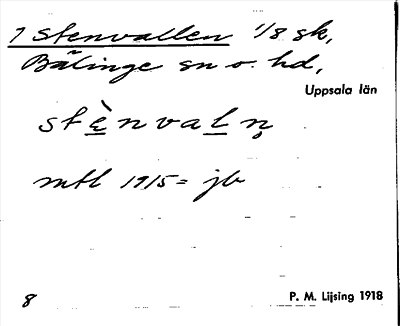 1 Stenvallen 1/8 sk,
Bälinge sn o. hd,
Uppsala län
stὲnvaln̥
mtl 1915 = jb
8
P. M. Lijsing 1918